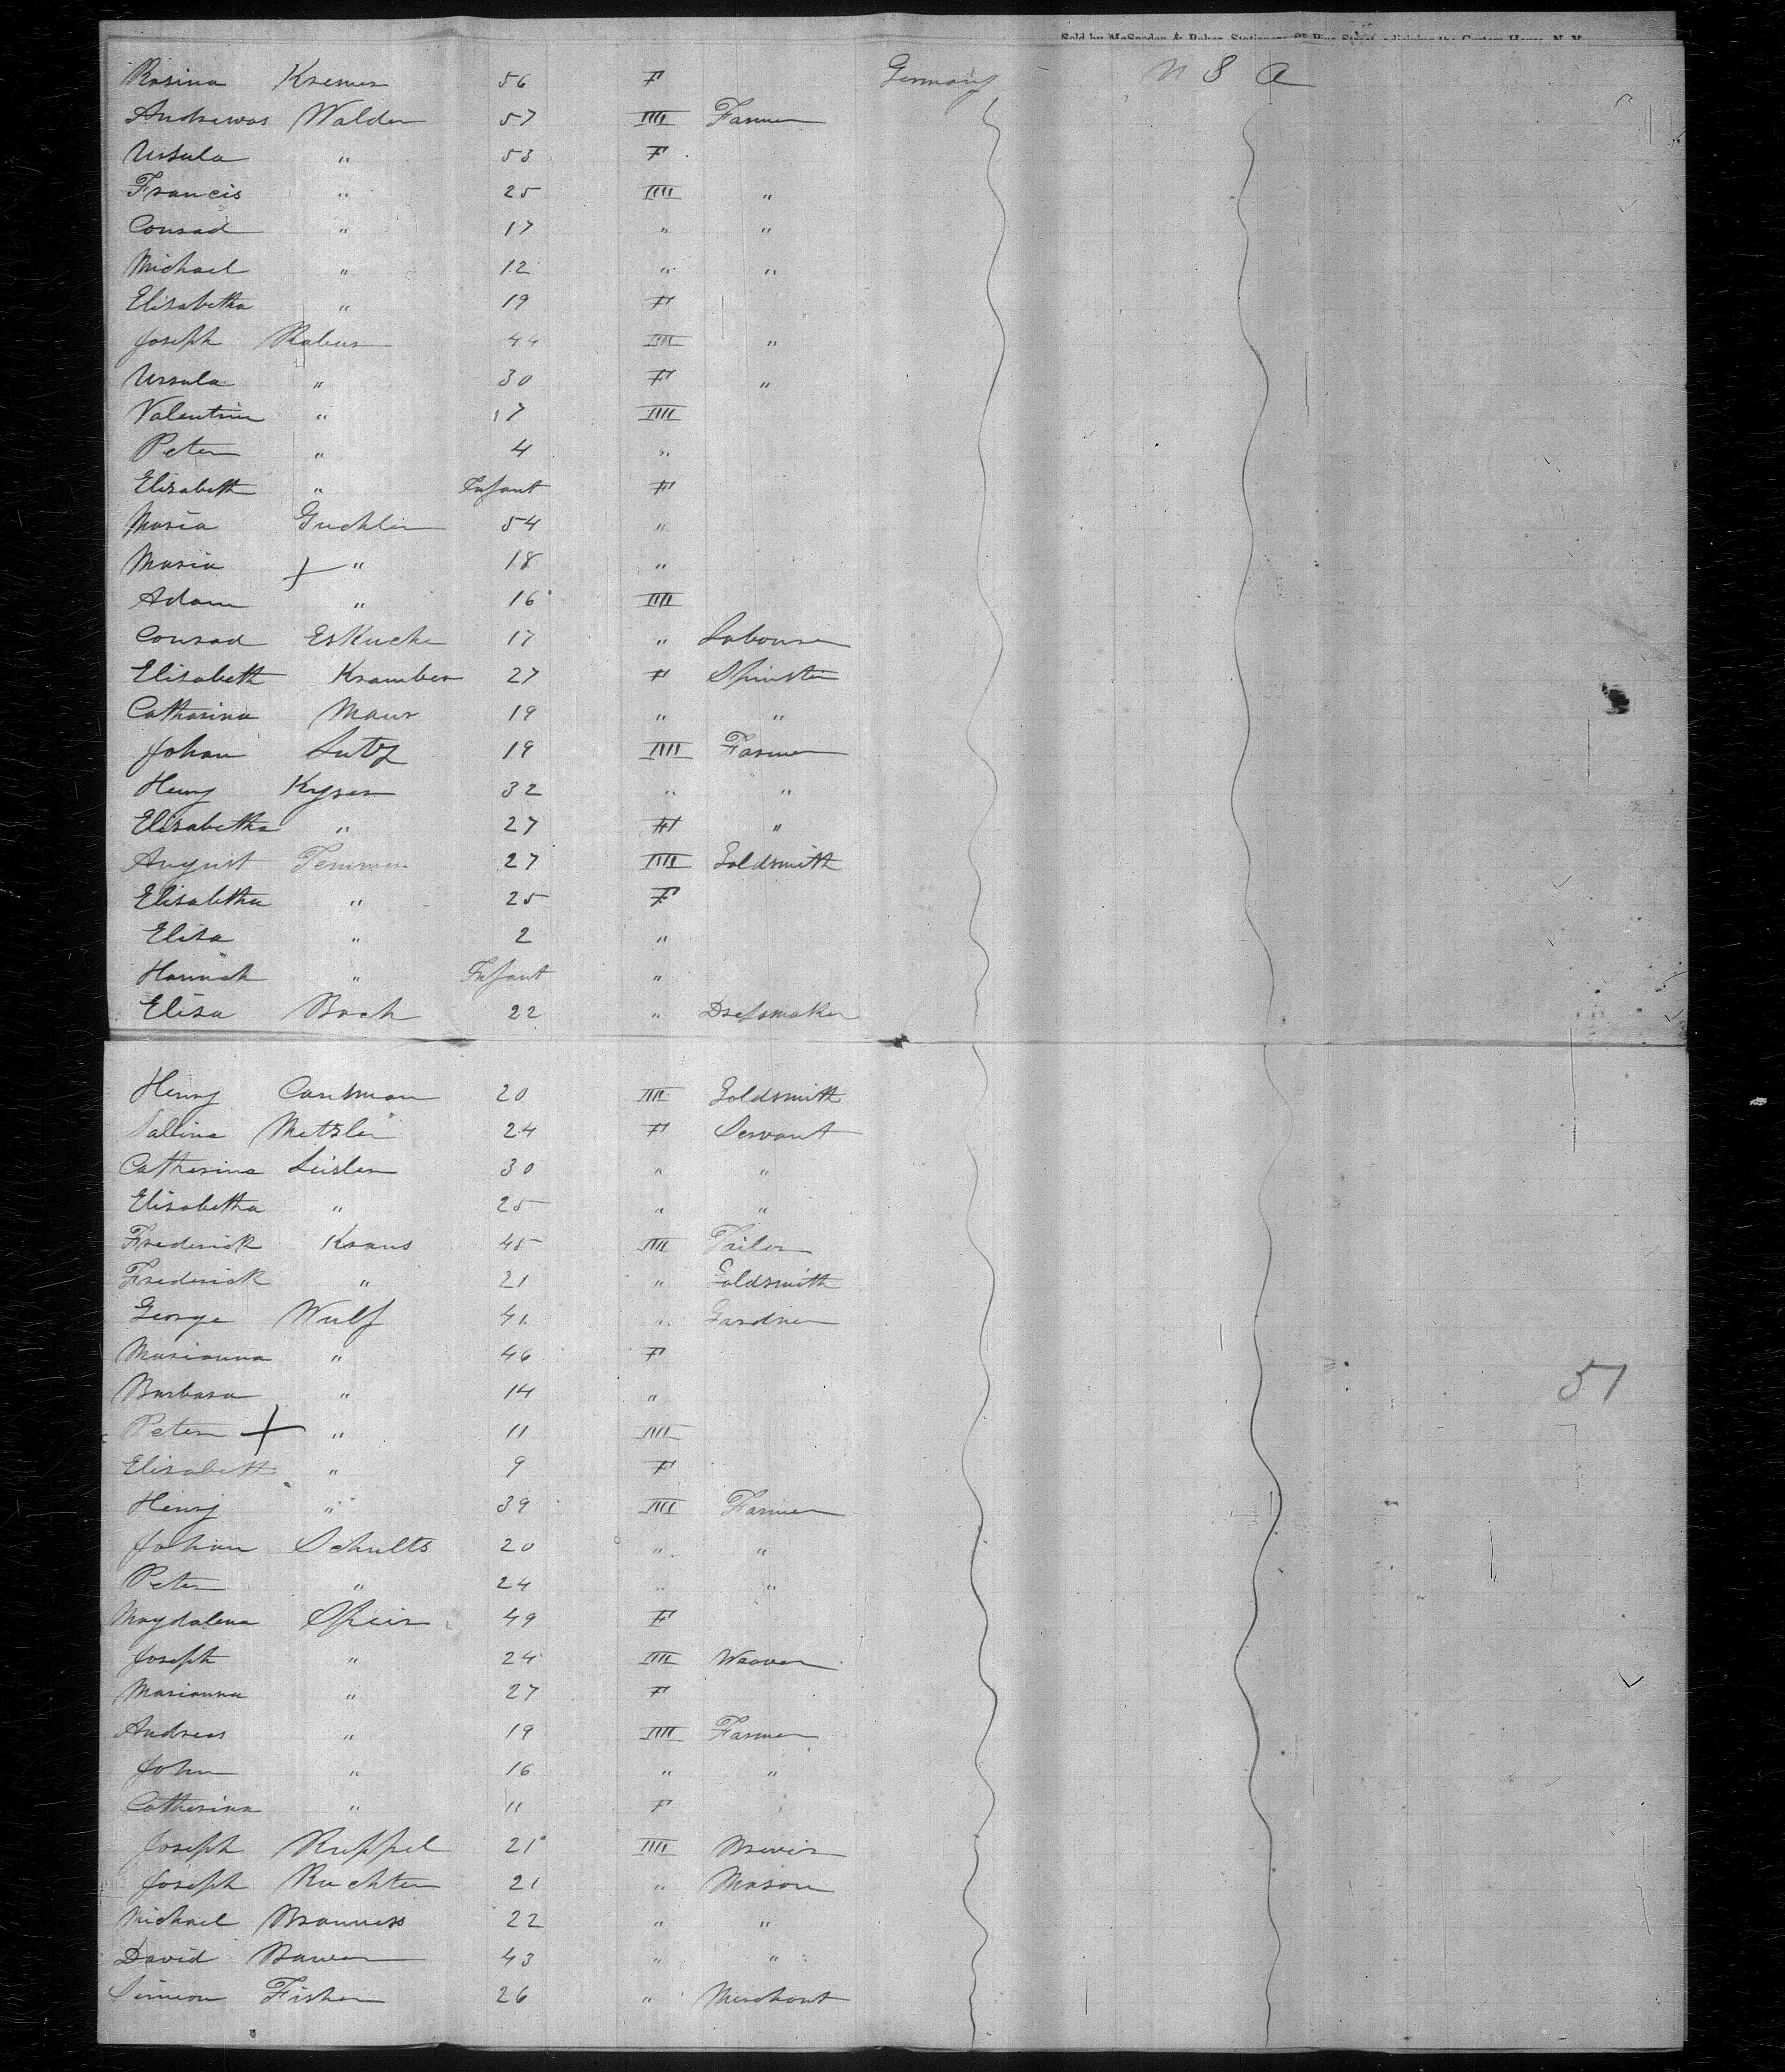 Sold by McSpedon & Baker, Stationers, 25 Pine Street, adjoining the Custom House, N. Y.
Rosina Kremer 56 F Germany U S A
Andrewas Walder 57 M Farmer
Ursula " 53 F
Francis " 25 M "
Conrad " 17 " "
Michael " 12 " "
Elisabetha " 19 F
Joseph Rabus 44 M "
Ursula " 30 F "
Valentin " 7 M
Peter " 4 "
Elisabeth " Infant F
Maria Guchlin 54 "
Maria " 18 "
Adam " 16 M
Conrad Eskuche 17 " Labourer
Elisabeth Kramber 27 F Spinster
Catharina Maur 19 " "
Johan Lutz 19 M Farmer
Henry Kyser 32 " "
Elisabetha " 27 F "
August Temmer 27 M Goldsmith
Elisabetha " 25 F
Elisa " 2 "
Hannah " Infant "
Elisa Bach 22 " Dressmaker
Henry Cantsman 20 M Goldsmith
Sallina Metzler 24 F Servant
Catherina Leisler 30 " "
Elisabetha " 25 " "
Frederick Kraus 45 M Tailor
Frederick " 21 " Goldsmith
George Wulf 41 " Gardner
Marianna " 46 F
Barbara " 14 "
Peter " 11 M
Elisabeth " 9 F
Henry " 39 M Farmer
Johan Schults 20 " "
Peter " 24 " "
Magdalena Speir 49 F
Joseph " 24 M Weaver
Marianna " 27 F
Andreas " 19 M Farmer
John " 16 " "
Catherina " 11 F
Joseph Ruppel 21 M
Joseph Ruchter 21 " Mason
Michael Branness 22 " "
David Bawer 43 " "
Simeon Fisher 26 " Merchant
51